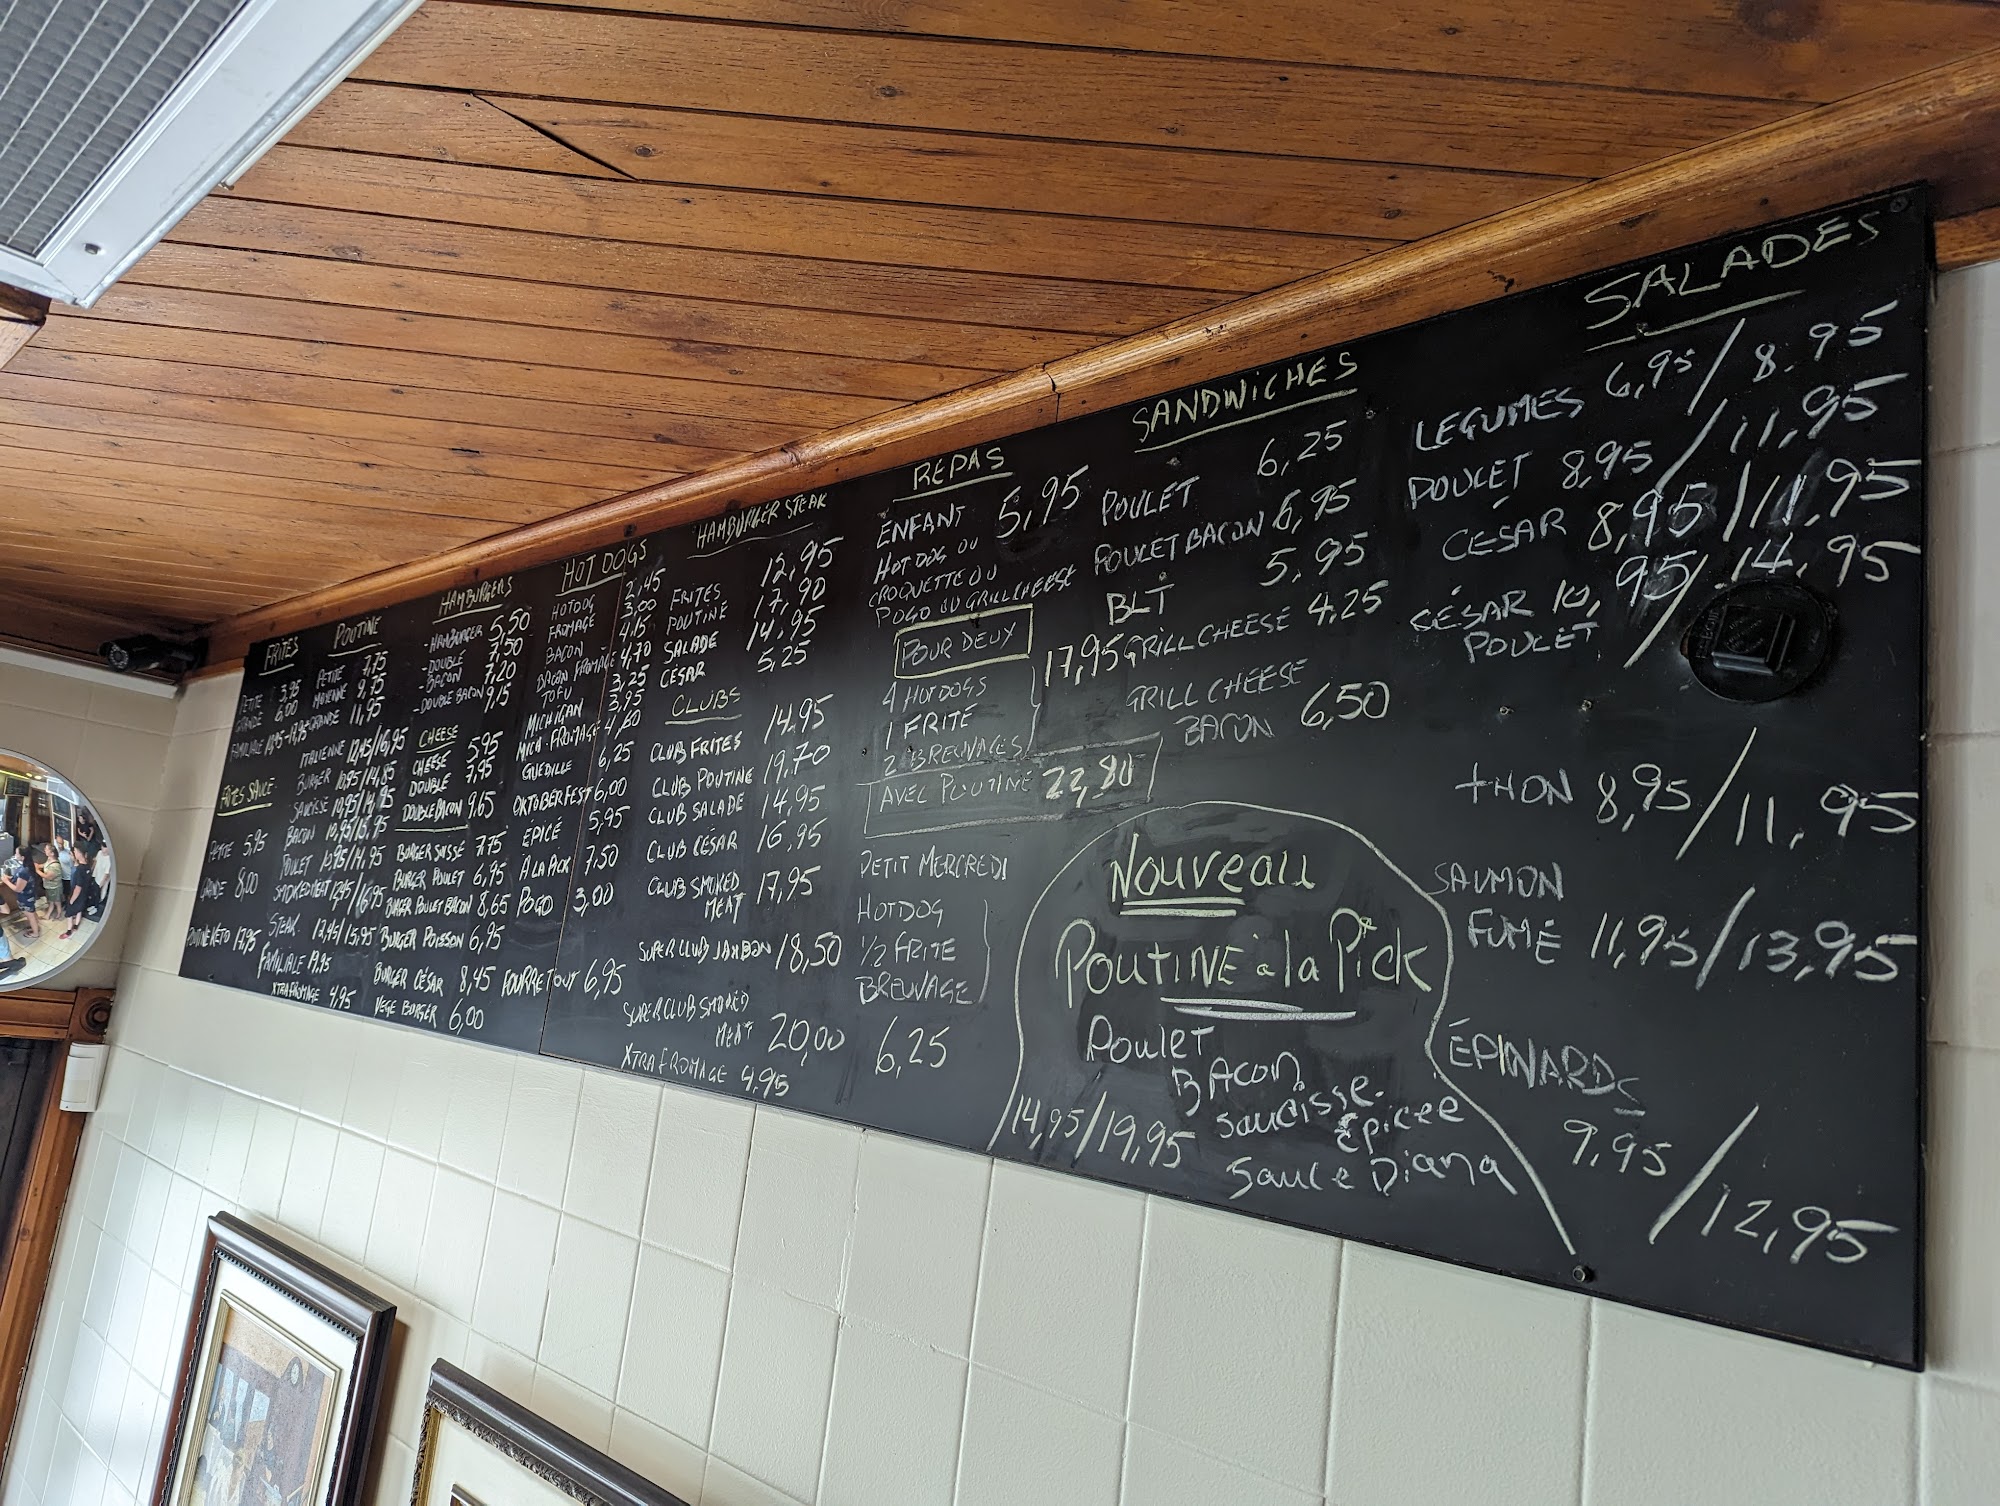 FRITES
PETITE 3,95
GRANDE 6,00
FAMILIALE
FRITES SAUCE
PETITE 5,95
GRANDE 8,00
POUTINE KETO 17,95
POUTINE
PETITE 7,75
MOYENNE 9,75
GRANDE 11,95
ITALIENNE 12,45/16,95
BURGER 10,95/14,85
SAUCISSE 10,95/14,95
BACON 10,95/15,95
POULET 10,95/14,95
SMOKED MEAT 12,45/16,95
STEAK 12,45/15,95
FAMILIALE 19,95
XTRA FROMAGE 4,95
HAMBURGERS
-HAMBURGER 5,50
-DOUBLE 7,50
-BACON 7,20
-DOUBLE BACON 9,15
CHEESE
CHEESE 5,95
DOUBLE 7,95
DOUBLE BACON 9,65
BURGER SAUSSE 7,75
BURGER POULET 6,95
BURGER POULET BACON 8,65
BURGER POISSON 6,95
BURGER CÉSAR 8,45
VEGE BURGER 6,00
HOT DOGS
HOTDOG 2,45
FROMAGE 3,00
BACON 4,15
BACON FROMAGE 4,70
TOFU 3,25
MICHIGAN 3,95
MICH. FROMAGE 4,60
GUEDILLE 6,25
OKTOBERFEST 6,00
ÉPICÉ 5,95
À LA PICK 7,50
POGO 3,00
FOURRETOUT 6,95
HAMBURGER STEAK
FRITES 12,95
POUTINE 17,90
SALADE 14,95
CÉSAR 5,25
CLUBS
CLUB FRITES 14,95
CLUB POUTINE 19,70
CLUB SALADE 14,95
CLUB CÉSAR 16,95
CLUB SMOKED
MEAT 17,95
SUPER CLUB JAMBON 18,50
SUPER CLUB SMOKED
MEAT 20,00
XTRA FROMAGE 4,95
REPAS
ENFANT 5,95
HOT DOG OU
CROQUETTE OU
POGO OU GRILL CHEESE
POUR DEUX
4 HOTDOGS
1 FRITE 17,95
2 BREUVAGES
AVEC POUTINE 22,80
PETIT MERCREDI
HOTDOG
1/2 FRITE
BREUVAGE
6,25
SANDWICHES
POULET 6,25
POULET BACON 6,95
BLT 5,95
GRILL CHEESE 4,25
GRILL CHEESE
BACON 6,50
NOUVEAU
POUTINE à la Pick
Poulet
BACON
Saucisse
Épicée
Sauce Diana
14,95/19,95
SALADES
LEGUMES 6,95/8.95
POULET 8,95/11,95
CESAR 8,95/11,95
CÉSAR 10,95/14,95
POULET
tHON 8,95/11,95
SAUMON
FUMÉ 11,95/13,95
ÉPINARDS
9,95/12,95